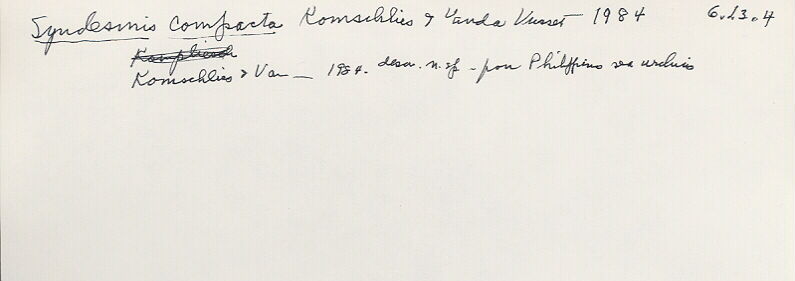 Syndesmis compacta Komschlies & Vande Vusse 1984 6.13.4
Komschlies & Van — 1984. descr. n. sp. - from Philippine sea urchins